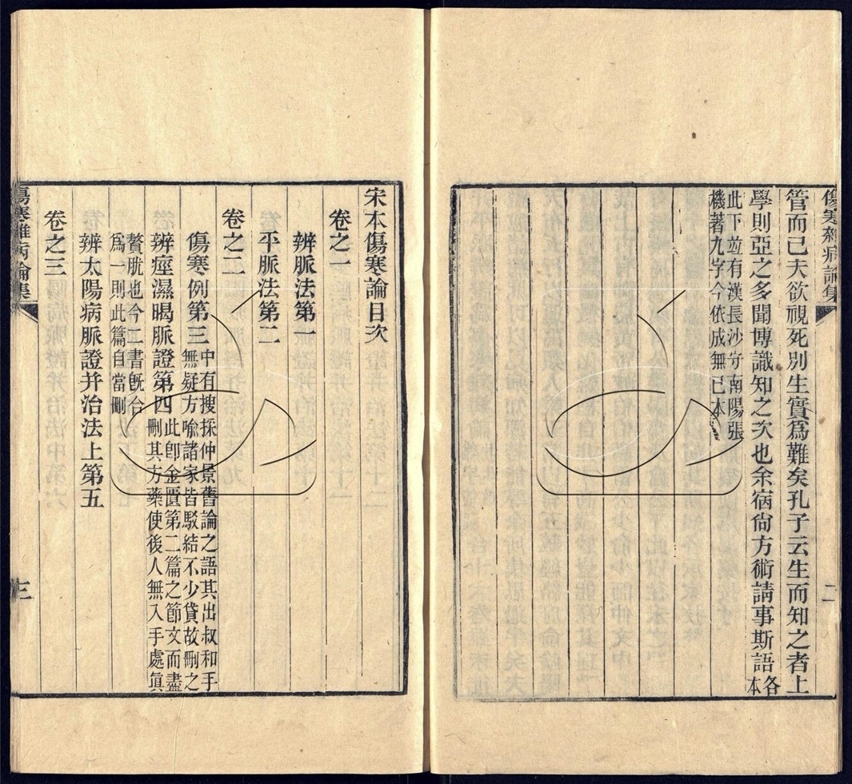 傷寒雜病論集
二
管而已夫欲視死別生實為難矣孔子云生而知之者上
學則亞之多聞博識知之次也余病尙方術請事斯語各本
此下竝有漢長沙守南陽張
機著九字今依成無已本
宋本傷寒論目次
卷之一
辨脈法第一
平脈法第二
卷之二
傷寒例第三中有搜採仲景舊論之語其出叔和手
無疑方喩諸家皆駁結不少貸故刪之
辨痙濕暍脈證第四此卽金匱第二篇之節文而盡
刪其方藥使後人無入手處眞
贅肬也今二書旣合
爲一則此篇自當刪
卷之三
辨太陽病脈證并治法上第五
傷寒雜病論集
三